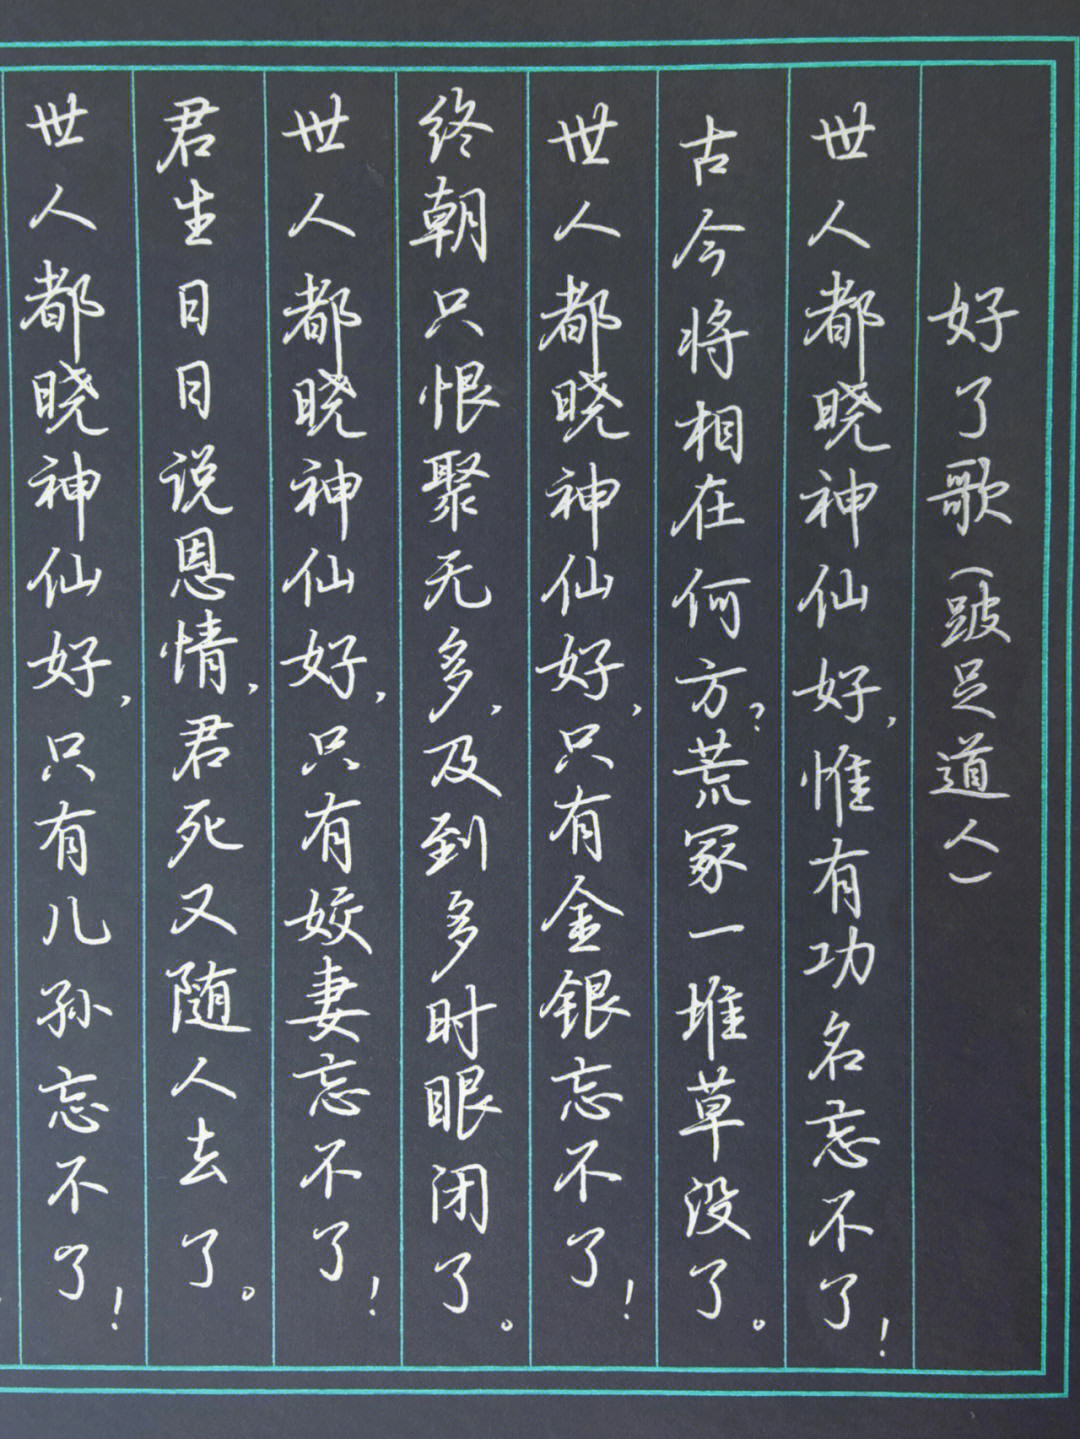 好了歌(跛足道人)
世人都晓神仙好,惟有功名忘不了!
古今将相在何方?荒冢一堆草没了。
世人都晓神仙好,只有金银忘不了!
终朝只恨聚无多,及到多时眼闭了。
世人都晓神仙好,只有姣妻忘不了!
君生日日说恩情,君死又随人去了。
世人都晓神仙好,只有儿孙忘不了!